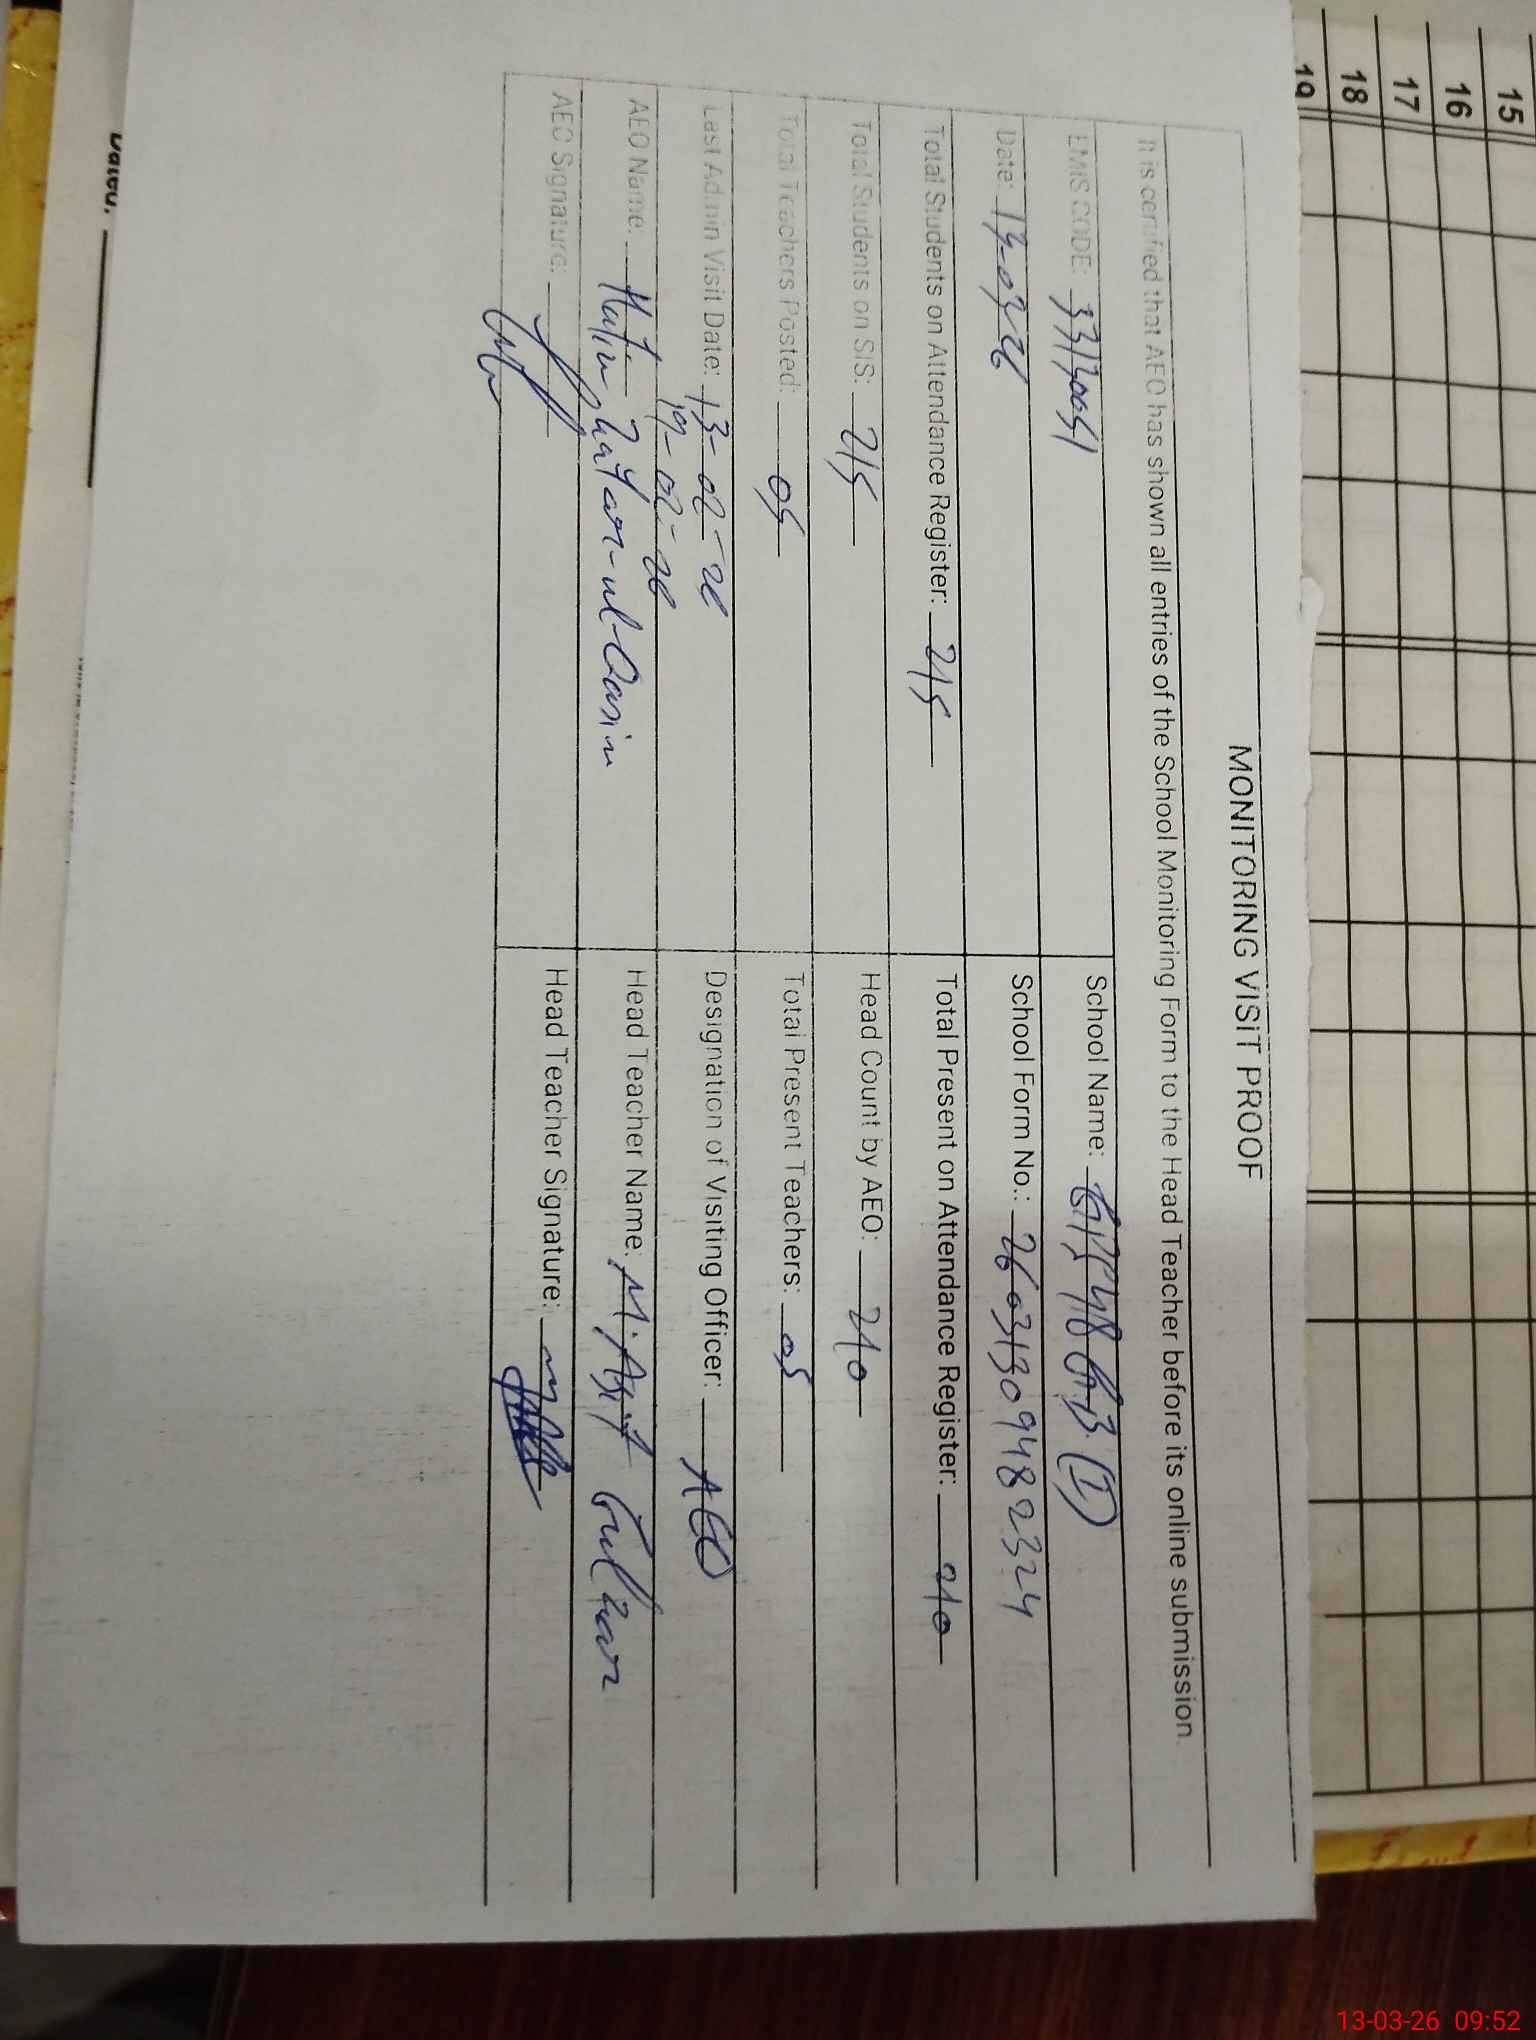 15
16
17
18
19
MONITORING VISIT PROOF
It is certified that AEO has shown all entries of the School Monitoring Form to the Head Teacher before its online submission.
EMIS CODE: 33130051 School Name: GPS 48 GB (I)
Date: 13-03-26 School Form No.: 26031309482324
Total Students on Attendance Register: 215 Total Present on Attendance Register: 210
Total Students on SIS: 215 Head Count by AEO: 210
Total Teachers Posted: 05 Total Present Teachers: 05
Last Admin Visit Date: 13-02-26 Designation of Visiting Officer: AEO
19-02-26
AEO Name: Hafiz Zafar-ul-Qasim Head Teacher Name: M. Asif Gulzar
AEO Signature: Head Teacher Signature:
Dated:
13-03-26 09:52